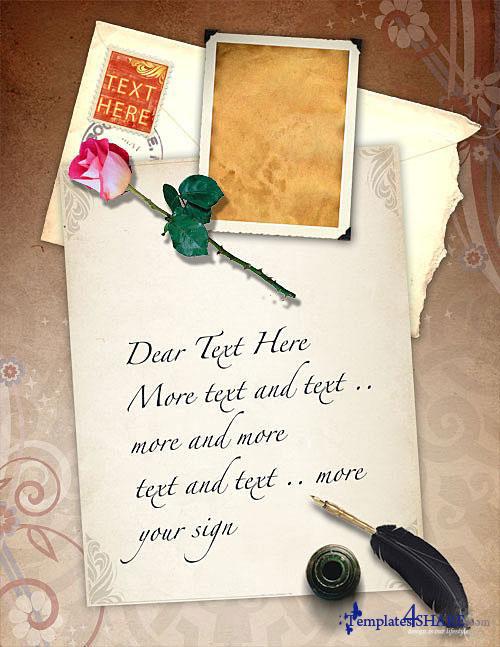 TEXT
HERE
Dear Text Here
More text and text ..
more and more
text and text .. more
your sign
Templates4SHARE.com
design is our lifestyle